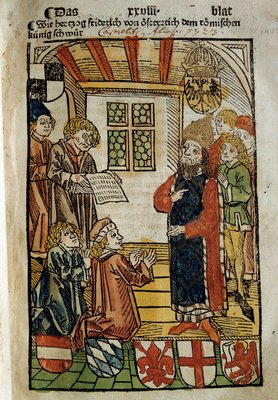 Das xxviii blat
Wie hertzog friderich von österreich dem römischen
künig schwür